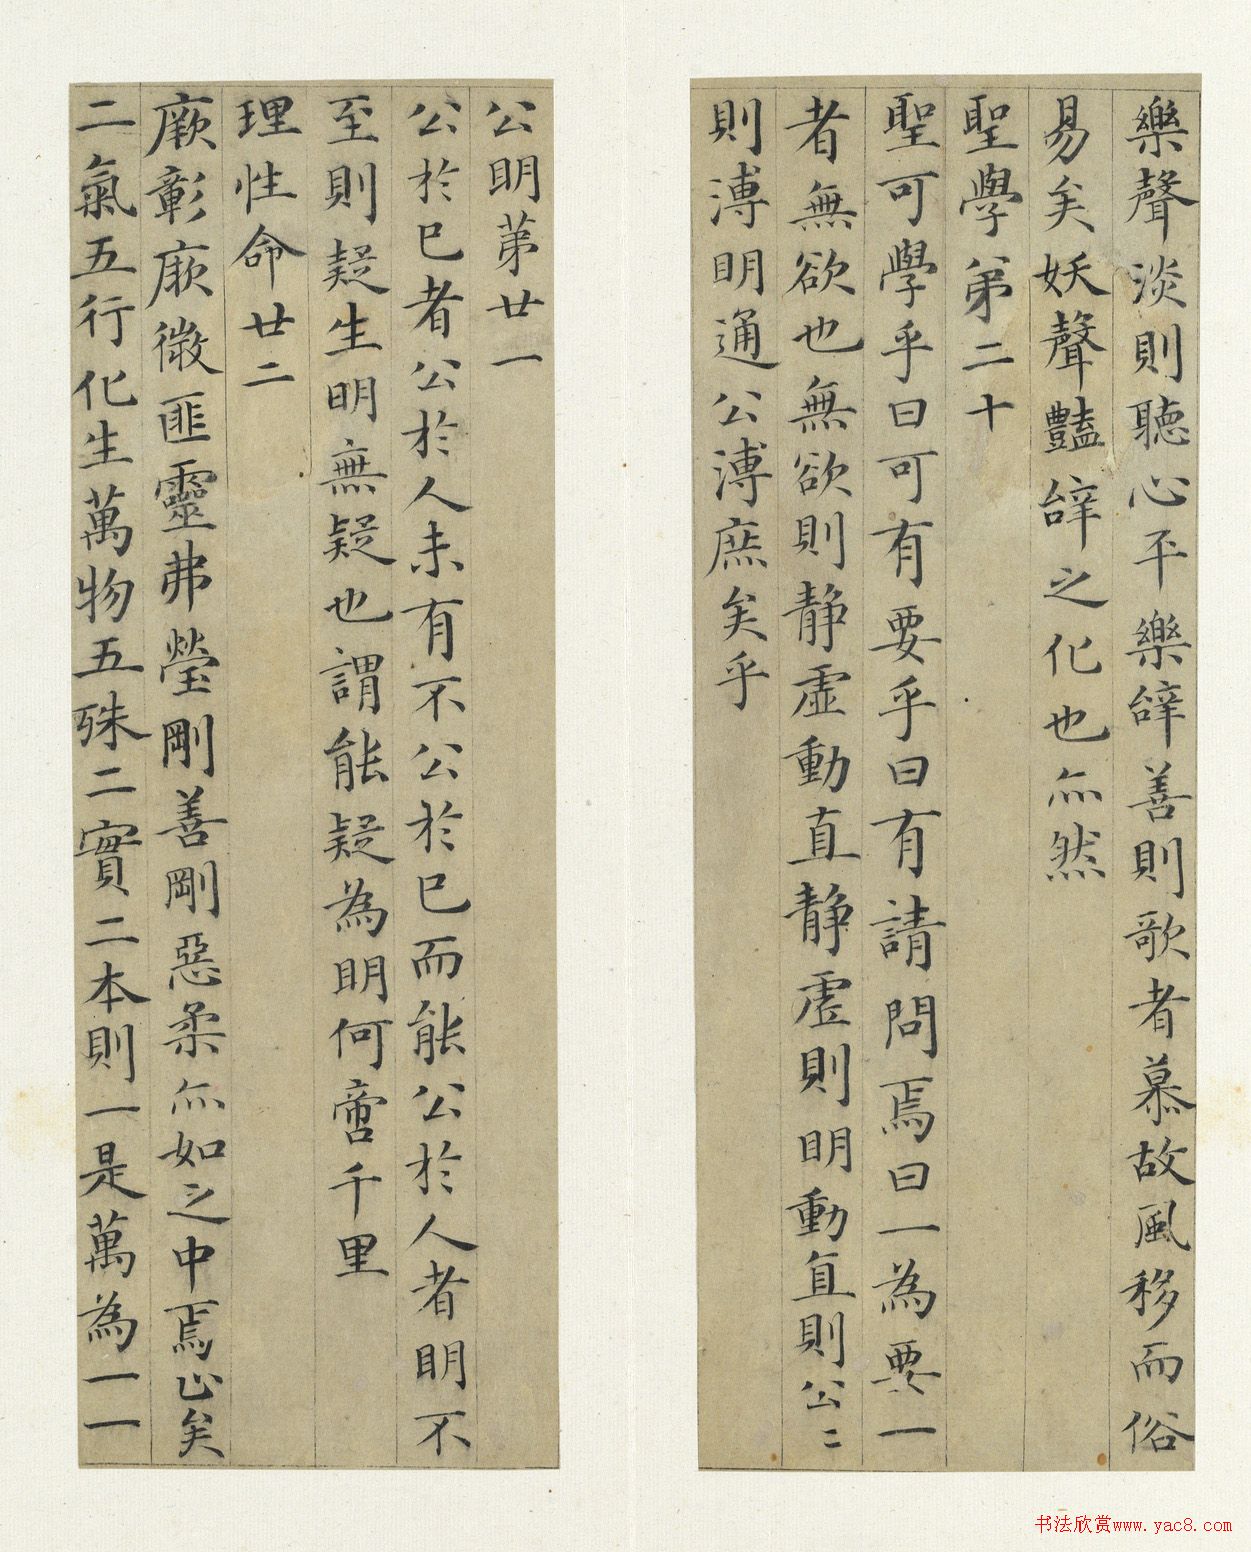 樂聲淡則聽心平樂辝善則歌者慕故風移而俗
易矣妖聲豔辝之化也亦然
聖學第二十
聖可學乎曰可有要乎曰有請問焉曰一為要一
者無欲也無欲則静虛動直静虛則明動直則公〻
則溥明通公溥庶矣乎
公明第廿一
公於已者公於人未有不公於已而能公於人者明不
至則疑生明無疑也謂能疑為明何啻千里
理性命廿二
厥彰厥微匪靈弗瑩剛善剛惡柔亦如之中焉止矣
二氣五行化生萬物五殊二實二本則一是萬為一一
书法欣赏www.yac8.com